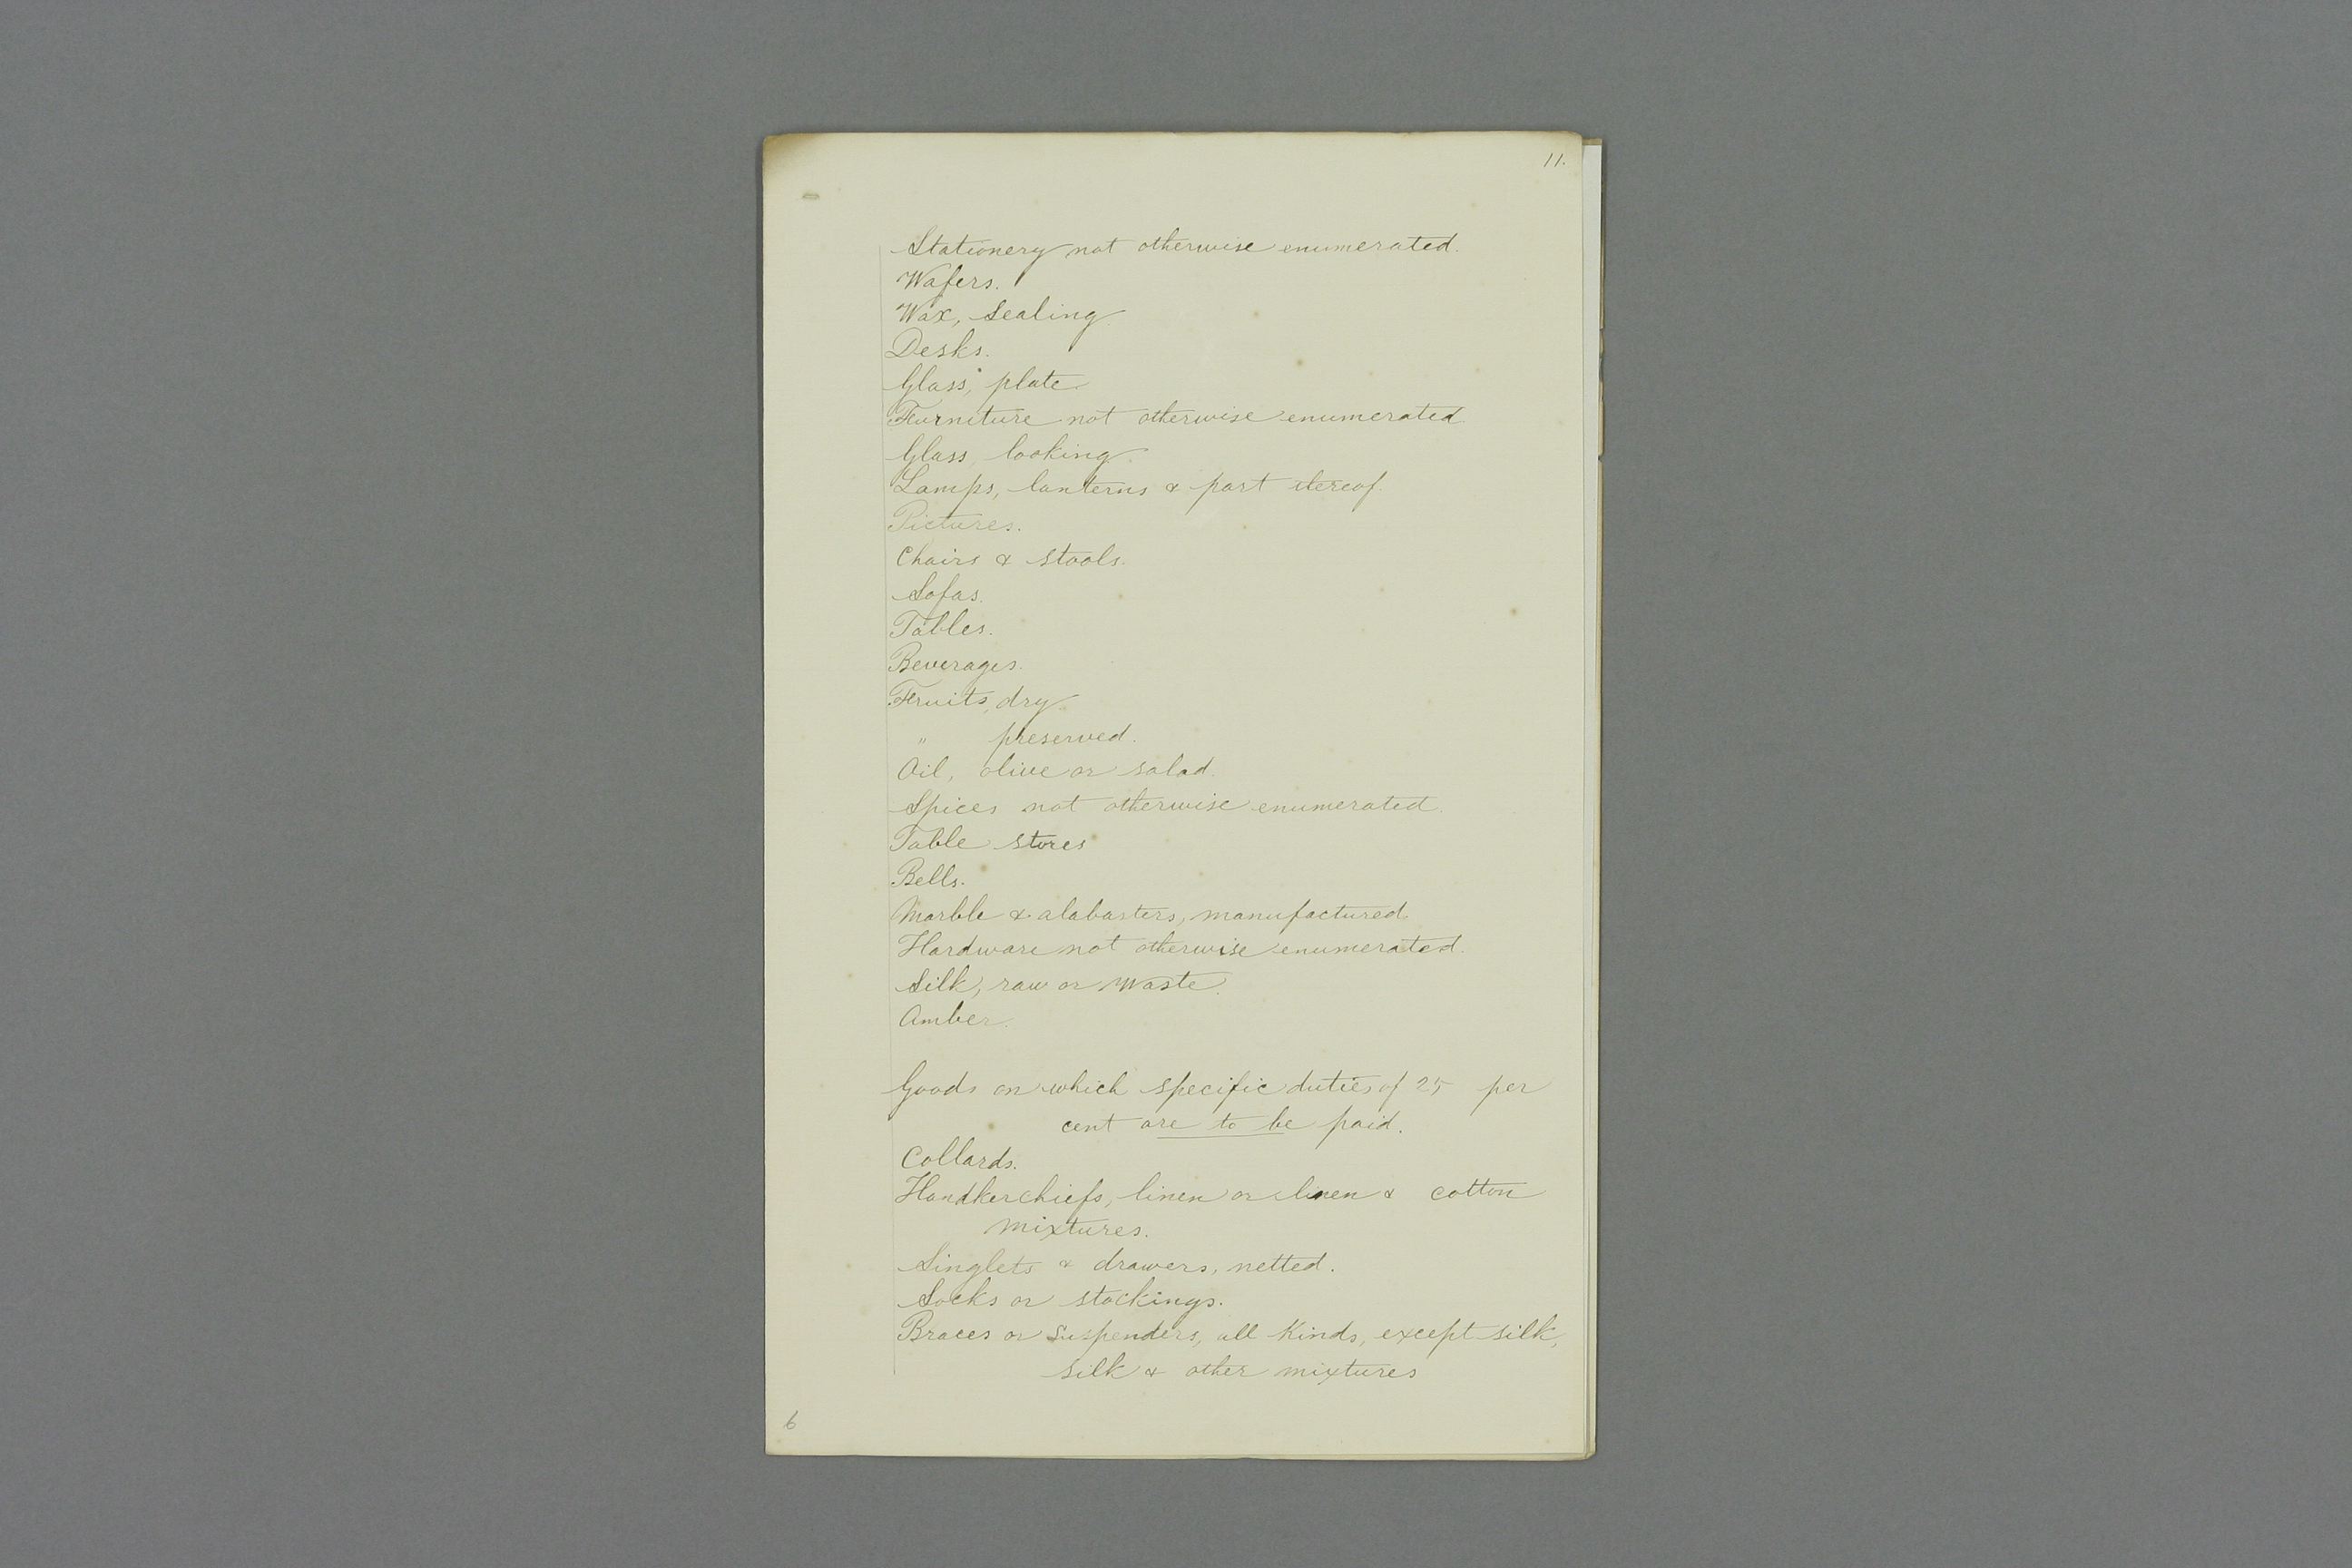 11.
Stationery not otherwise enumerated.
Wafers.
Wax, Sealing
Desks.
Glass, plate
Furniture not otherwise enumerated
Glass, looking.
Lamps, lanterns & part thereof.
Pictures.
Chairs & stools.
Sofas.
Tables.
Beverages.
Fruits, dry.
" preserved.
Oil, olive or salad.
Spices not otherwise enumerated.
Table stores
Bells.
Marble & alabasters, manufactured.
Hardware not otherwise enumerated.
Silk, raw or waste.
Amber.
Goods on which specific duties of 25 per
cent are to be paid.
Collards.
Handkerchiefs, linen or linen & cotton
mixtures.
Singlets & drawers, netted.
Socks or stockings.
Braces or Suspenders, all Kinds, except silk,
silk & other mixtures
6